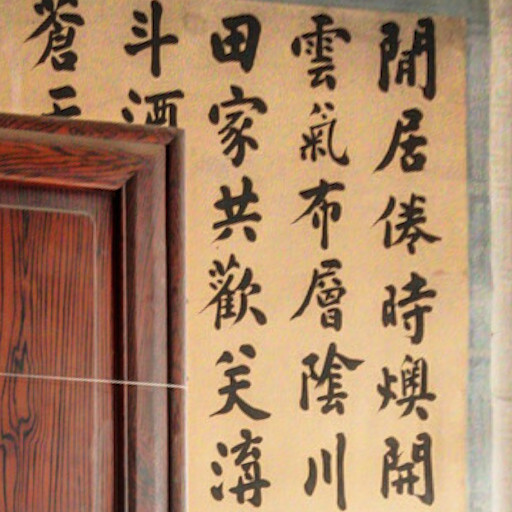 閒居倦時燠開
雲氣布層陰川
田家共歡笑溝
斗酒
蒼天